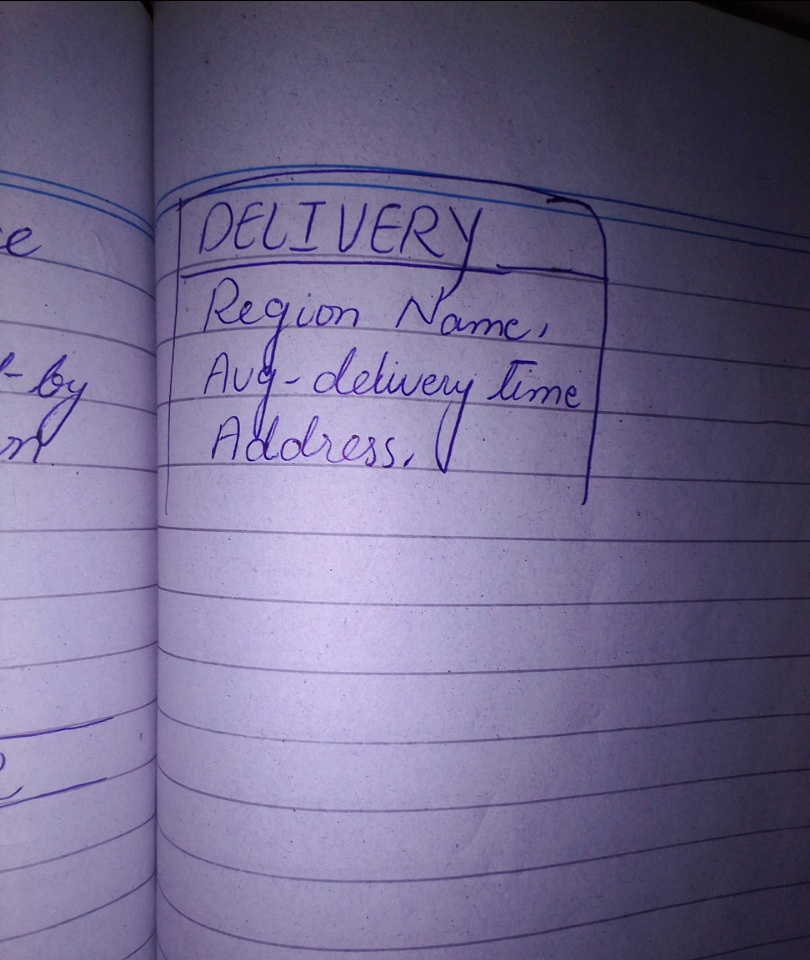 DELIVERY
Region Name,
Avg-delivery time
Address.
-by